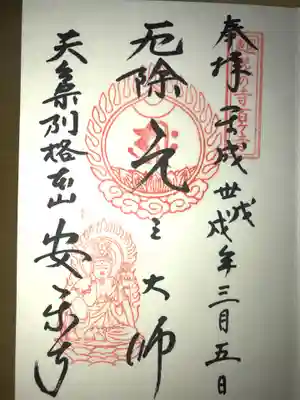 奉拝 平成卅戊戌年三月五日
厄除 元三大師
天台別格本山 安楽寺